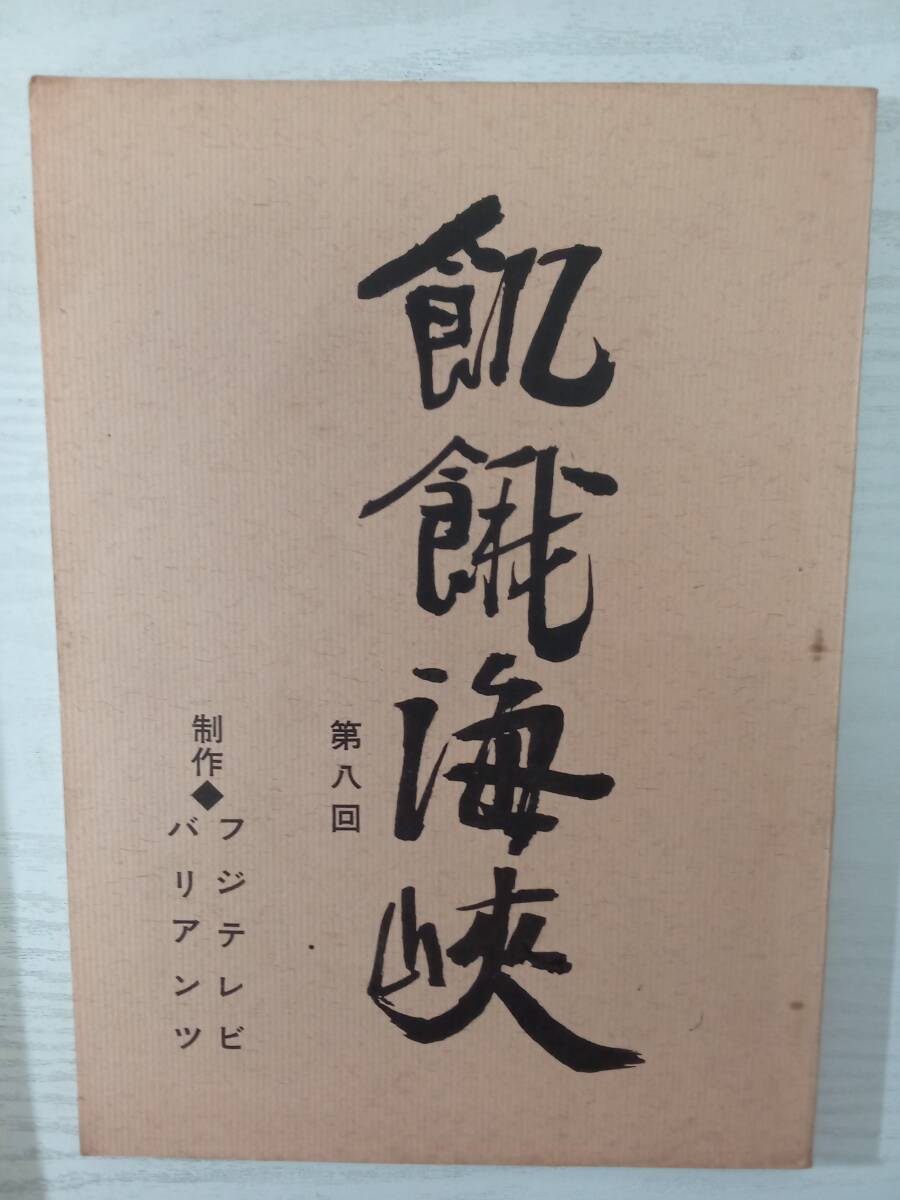 飢餓海峡
第八回
制作◆
フジテレビ
バリアンツ